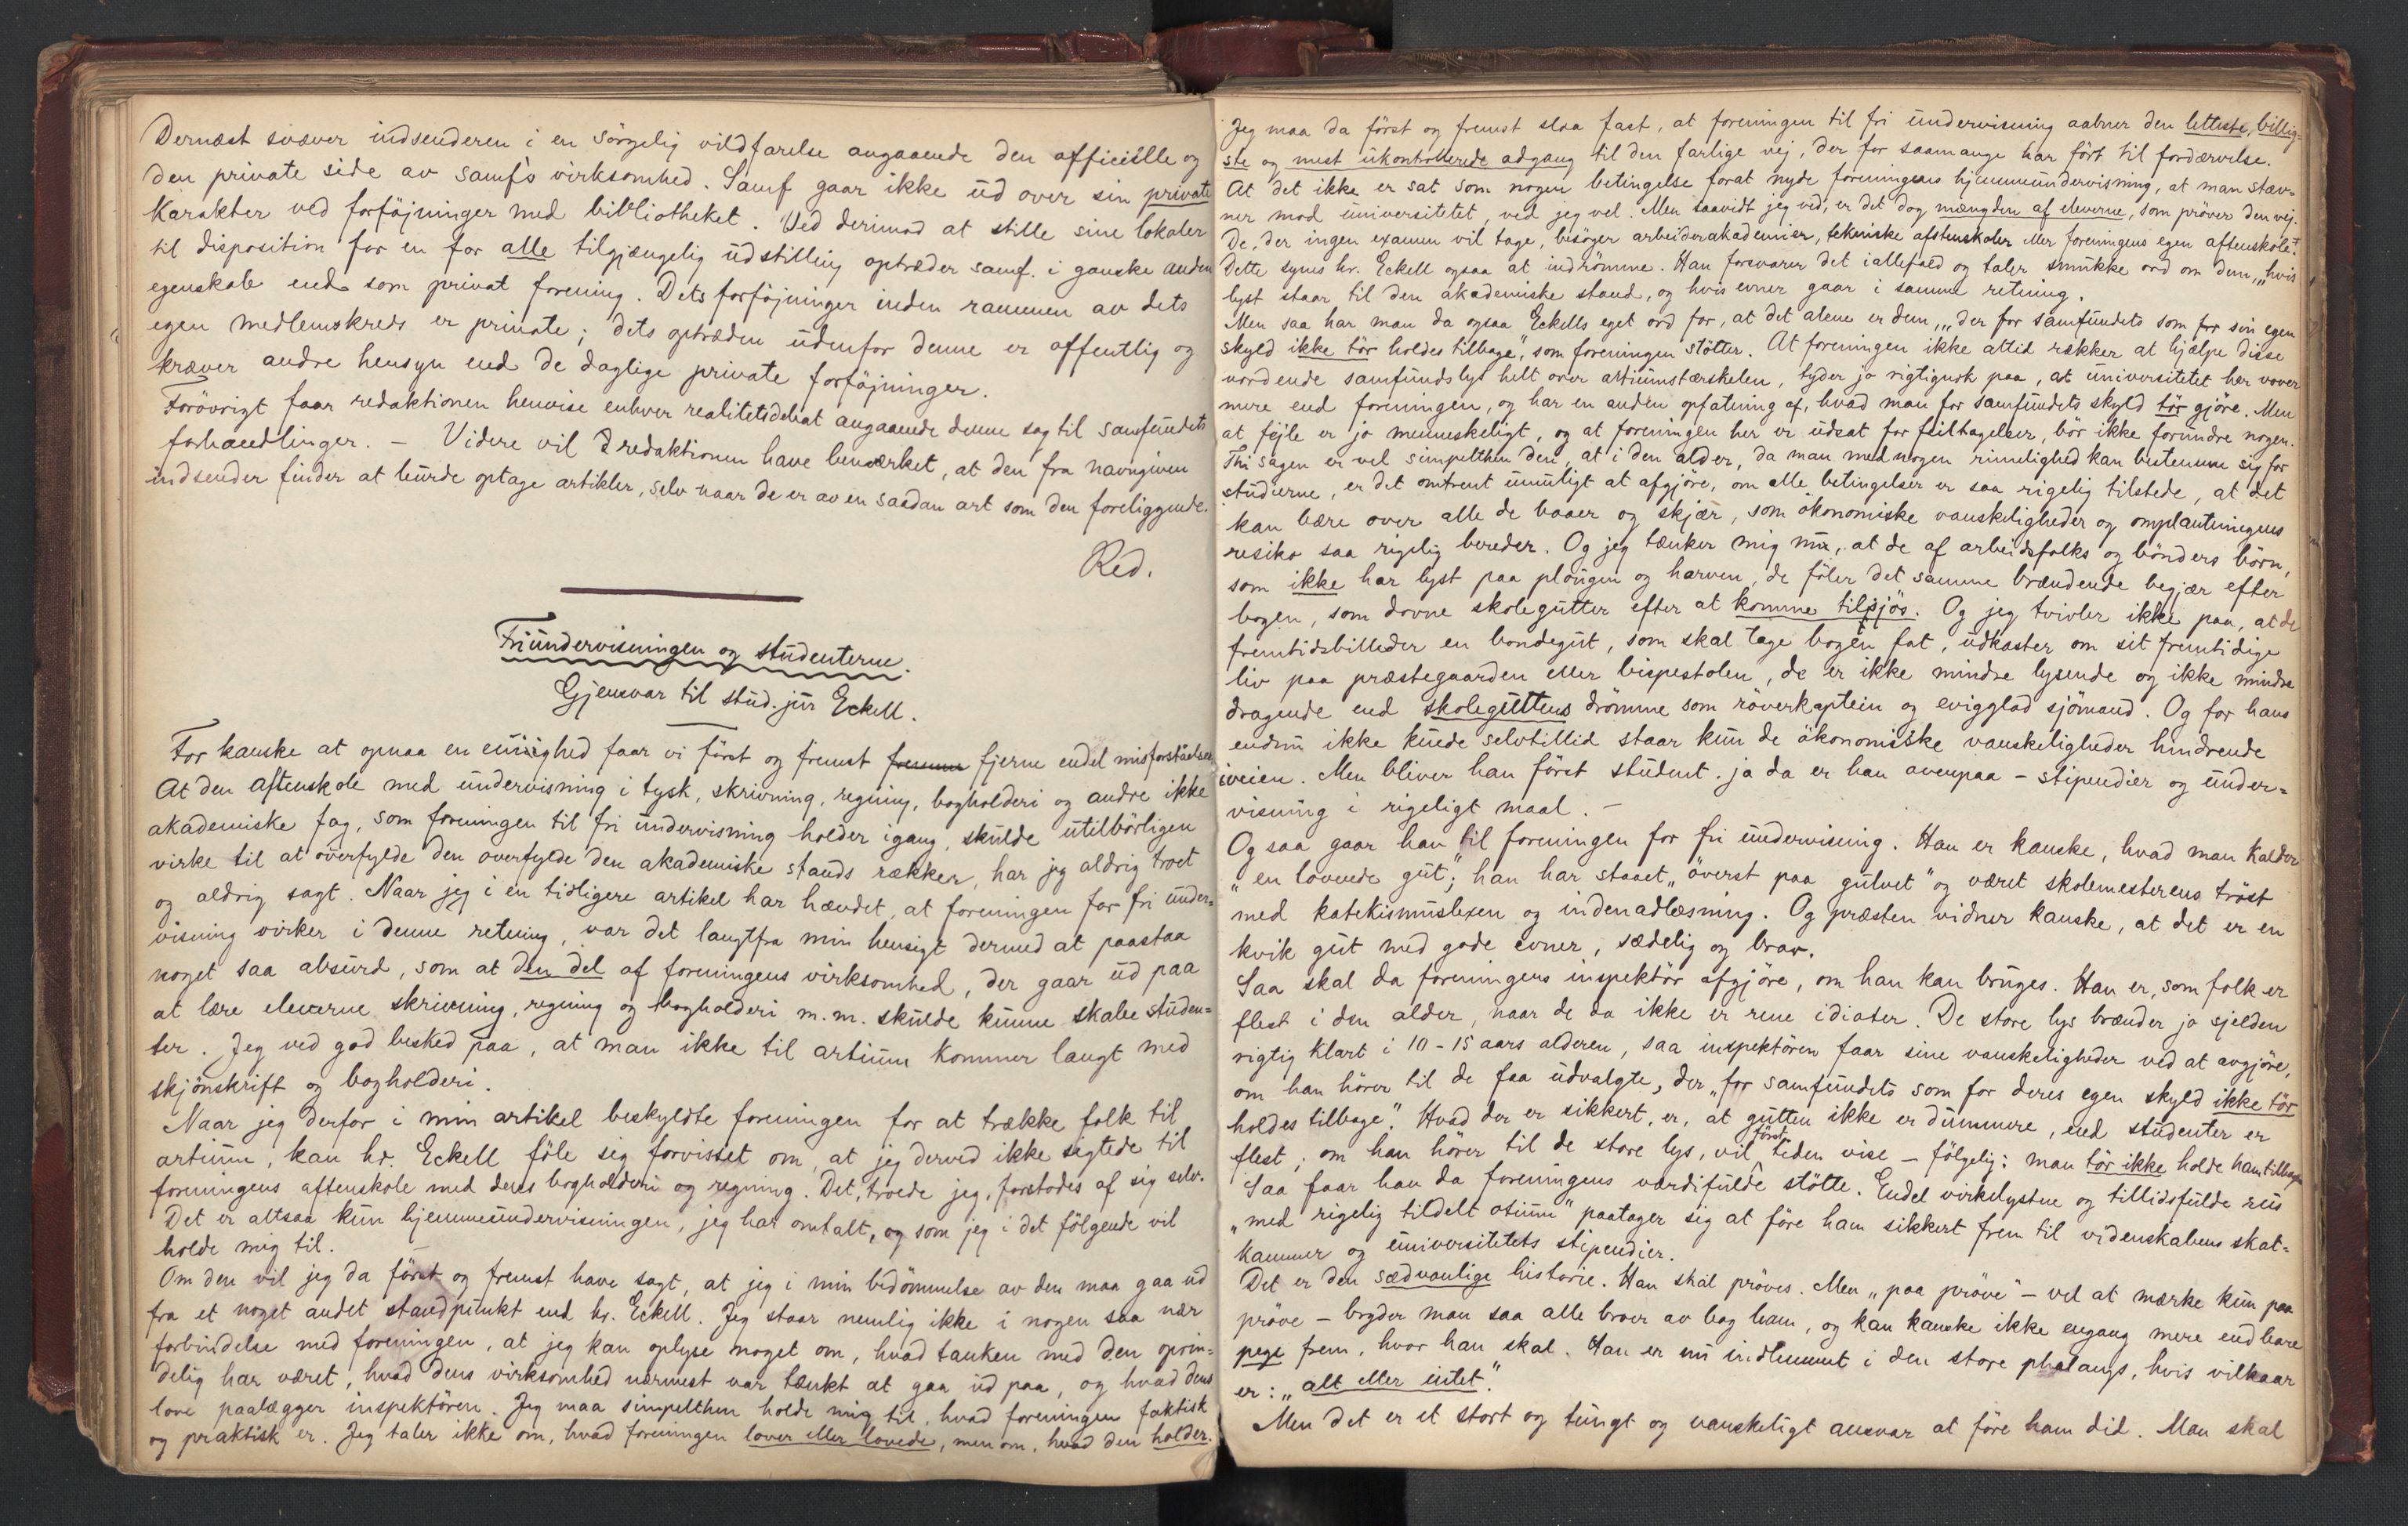 Dernæst svæver indsenderen i en sörgelig vildfarelse angaaende den officiëlle og
den private side av samf's virksomhed. Samf gaar ikke ud over sin private
karakter ved forföjninger med bibliotheket. Ved derimod at stille sine lokaler
til disposition for en for alle tilgjængelig udstilling optræder samf. i ganske anden
egenskab end som privat forening. Dets forföjninger inden rammen av dets
egen medlemskreds er private; dets optræden udenfor denne er offentlig og
kræver andre hensyn end de daglige private forföjninger.
Forövrigt faar redaktionen henvise enhver realitetsdebat angaaende denne sag til samfundets
forhandlinger. – Videre vil redaktionen have bemærket, at den fra navngiven
indsender finder at burde optage artikler, selv naar de er av en saadan art som den foreliggende.
Red.
Friundervisningen og studenterne.
Gjensvar til stud. jur Eckell.
For kanske at opnaa en enighed faar vi först og fremst fjerne endel misforståelser
At den aftenskole med undervisning i tysk, skrivning, regning, bogholderi og andre ikke
akademiske fag, som foreningen til fri undervisning holder igang, skulde utilbörligen
virke til at overfylde den overfylde den akademiske stands rækker, har jeg aldrig troet
og aldrig sagt. Naar jeg i en tidligere artikel har hævdet, at foreningen for fri under=
visning virker i denne retning, var det langtfra min hensigt dermed at paastaa
noget saa absurd, som at den del af foreningens virksomhed, der gaar ud paa
at lære eleverne skrivning, regning og bogholderi m.m. skulde kunne skabe studen=
ter. Jeg ved god besked paa, at man ikke til artium kommer langt med
skjönskrift og bogholderi.
Naar jeg derfor i min artikel beskyldte foreningen for at trække folk til
artium, kan hr. Eckell föle sig forvisset om, at jeg derved ikke sigtede til
foreningens aftenskole med dens bogholderi og regning. Det, troede jeg, forstodes af sig selv.
Det er altsaa kun hjemmeundervisningen, jeg har omtalt, og som jeg i det fölgende vil
holde mig til.
Om den vil jeg da först og fremst have sagt, at jeg i min bedömmelse av den maa gaa ud
fra et noget andet standpunkt end hr. Eckell. Jeg staar nemlig ikke i nogen saa nær
forbindelse med foreningen, at jeg kan oplyse noget om, hvad tanken med den oprin=
delig har været, hvad dens virksomhed nærmest var tænkt at gaa ud paa, og hvad dens
love paalægger inspektören. Jeg maa simpelthen holde mig til, hvad foreningen faktisk
og praktisk er. Jeg taler ikke om, hvad foreningen lover eller lovede, men om, hvad den holder.
Jeg maa da först og fremst slaa fast, at foreningen til fri undervisning aabner den letteste, billig=
ste og mest ukontrollerede adgang til den farlige vej, der for saamange har fört til fordærvelse.
At det ikke er sat som nogen betingelse forat nyde foreningens hjemmeundervisning, at man stæv=
ner mod universitetet, ved jeg vel. Men saavidt jeg ved, er det dog mængden af eleverne, som pröver den vej.
De, der ingen examen vil tage, besöger arbeiderakademier, tekniske aftenskoler eller foreningens egen aftenskole.
Dette synes hr. Eckell ogsaa at indrömme. Han forsvarer det iallefald og taler smukke ord om dem, „hvis
lyst staar til den akademiske stand, og hvis evner gaar i samme retning.
Men saa har man da ogsaa Eckells eget ord for, at det alene er dem, „der for samfundets som for sin egen
skyld ikke tör holdes tilbage“, som foreningen stötter. At foreningen ikke altid rækker at hjælpe disse
vordende samfundslys helt over artiumstærskelen, tyder jo rigtignok paa, at universitetet her vover
mere end foreningen, og har en anden opfatning af, hvad man for samfundets skyld tör gjöre. Men
at fejle er jo menneskeligt, og at foreningen her er udsat for feiltagelser, bör ikke forundre nogen.
Thi sagen er vel simpelthen den, at i den alder, da man med nogen rimelighed kan bestemme sig for
studierne, er det omtrent umuligt at afgjöre, om alle betingelser er saa rigelig tilstede, at det
kan bære over alle de baaer og skjær, som ökonomiske vanskeligheder og omplantningens
resiko saa rigelig bereder. Og jeg tænker mig nu, at de af arbeidsfolks og bönders börn,
som ikke har lyst paa plougen og harven, de föler det samme brændende begjær efter
bogen, som dovne skolegutter efter at komme tilsjös. Og jeg tvivler ikke paa, at de
fremtidsbilleder en bondegut, som skal tage bogen fat, udkaster om sit fremtidige
liv paa præstegaarden eller bispestolen, de er ikke mindre lysende og ikke mindre
dragende end skoleguttens drömme som röverkaptein og evigglad sjömand. Og for hans
endnu ikke kuede selvtillid staar kun de ökonomiske vanskeligheder hindrende
iveien. Men bliver han först student, ja da er han ovenpaa – stipendier og under=
visning i rigeligt maal. –
Og saa gaar han til foreningen for fri undervisning. Han er kanske, hvad man kalder
„en lovende gut“; han har staaet „överst paa gulvet“ og været skolemesterens tröst
med katekismuslexen og indenadlæsning. Og præsten vidner kanske, at det er en
kvik gut med gode evner, sædelig og brav.
Saa skal da foreningens inspektör afgjöre, om han kan bruges. Han er, som folk er
flest i den alder, naar de da ikke er rene idioter. De store lys brænder jo sjelden
rigtig klart i 10-15 aars alderen, saa inspektören faar sine vanskeligheder ved at avgjöre,
om han hörer til de faa udvalgte, der „for samfundets som for deres egen skyld ikke tör
holdes tilbage“. Hvad der er sikkert, er, at gutten ikke er dummere, end studenter er
flest; om han hörer til de store lys, vil först tiden vise – fölgelig: man tör ikke holde ham tilbage
Saa faar han da foreningens værdifulde stötte. Endel virkelystne og tillidsfulde rus
„med rigelig tildelt otium“ paatager sig at före ham sikkert frem til videnskabens skat=
kammer og universitetets stipendier.
Det er den sædvanlige historie. Han skal pröves. Men „paa pröve“ – vel at mærke kun paa
pröve – bryder man saa alle broer av bag ham, og kan kanske ikke engang mere end bare
pege frem, hvor han skal. Han er nu indlemmet i den store phalangs, hvis vilkaar
er: „alt eller intet“.
Men det er et stort og tungt og vanskeligt ansvar at före ham did. Man skal